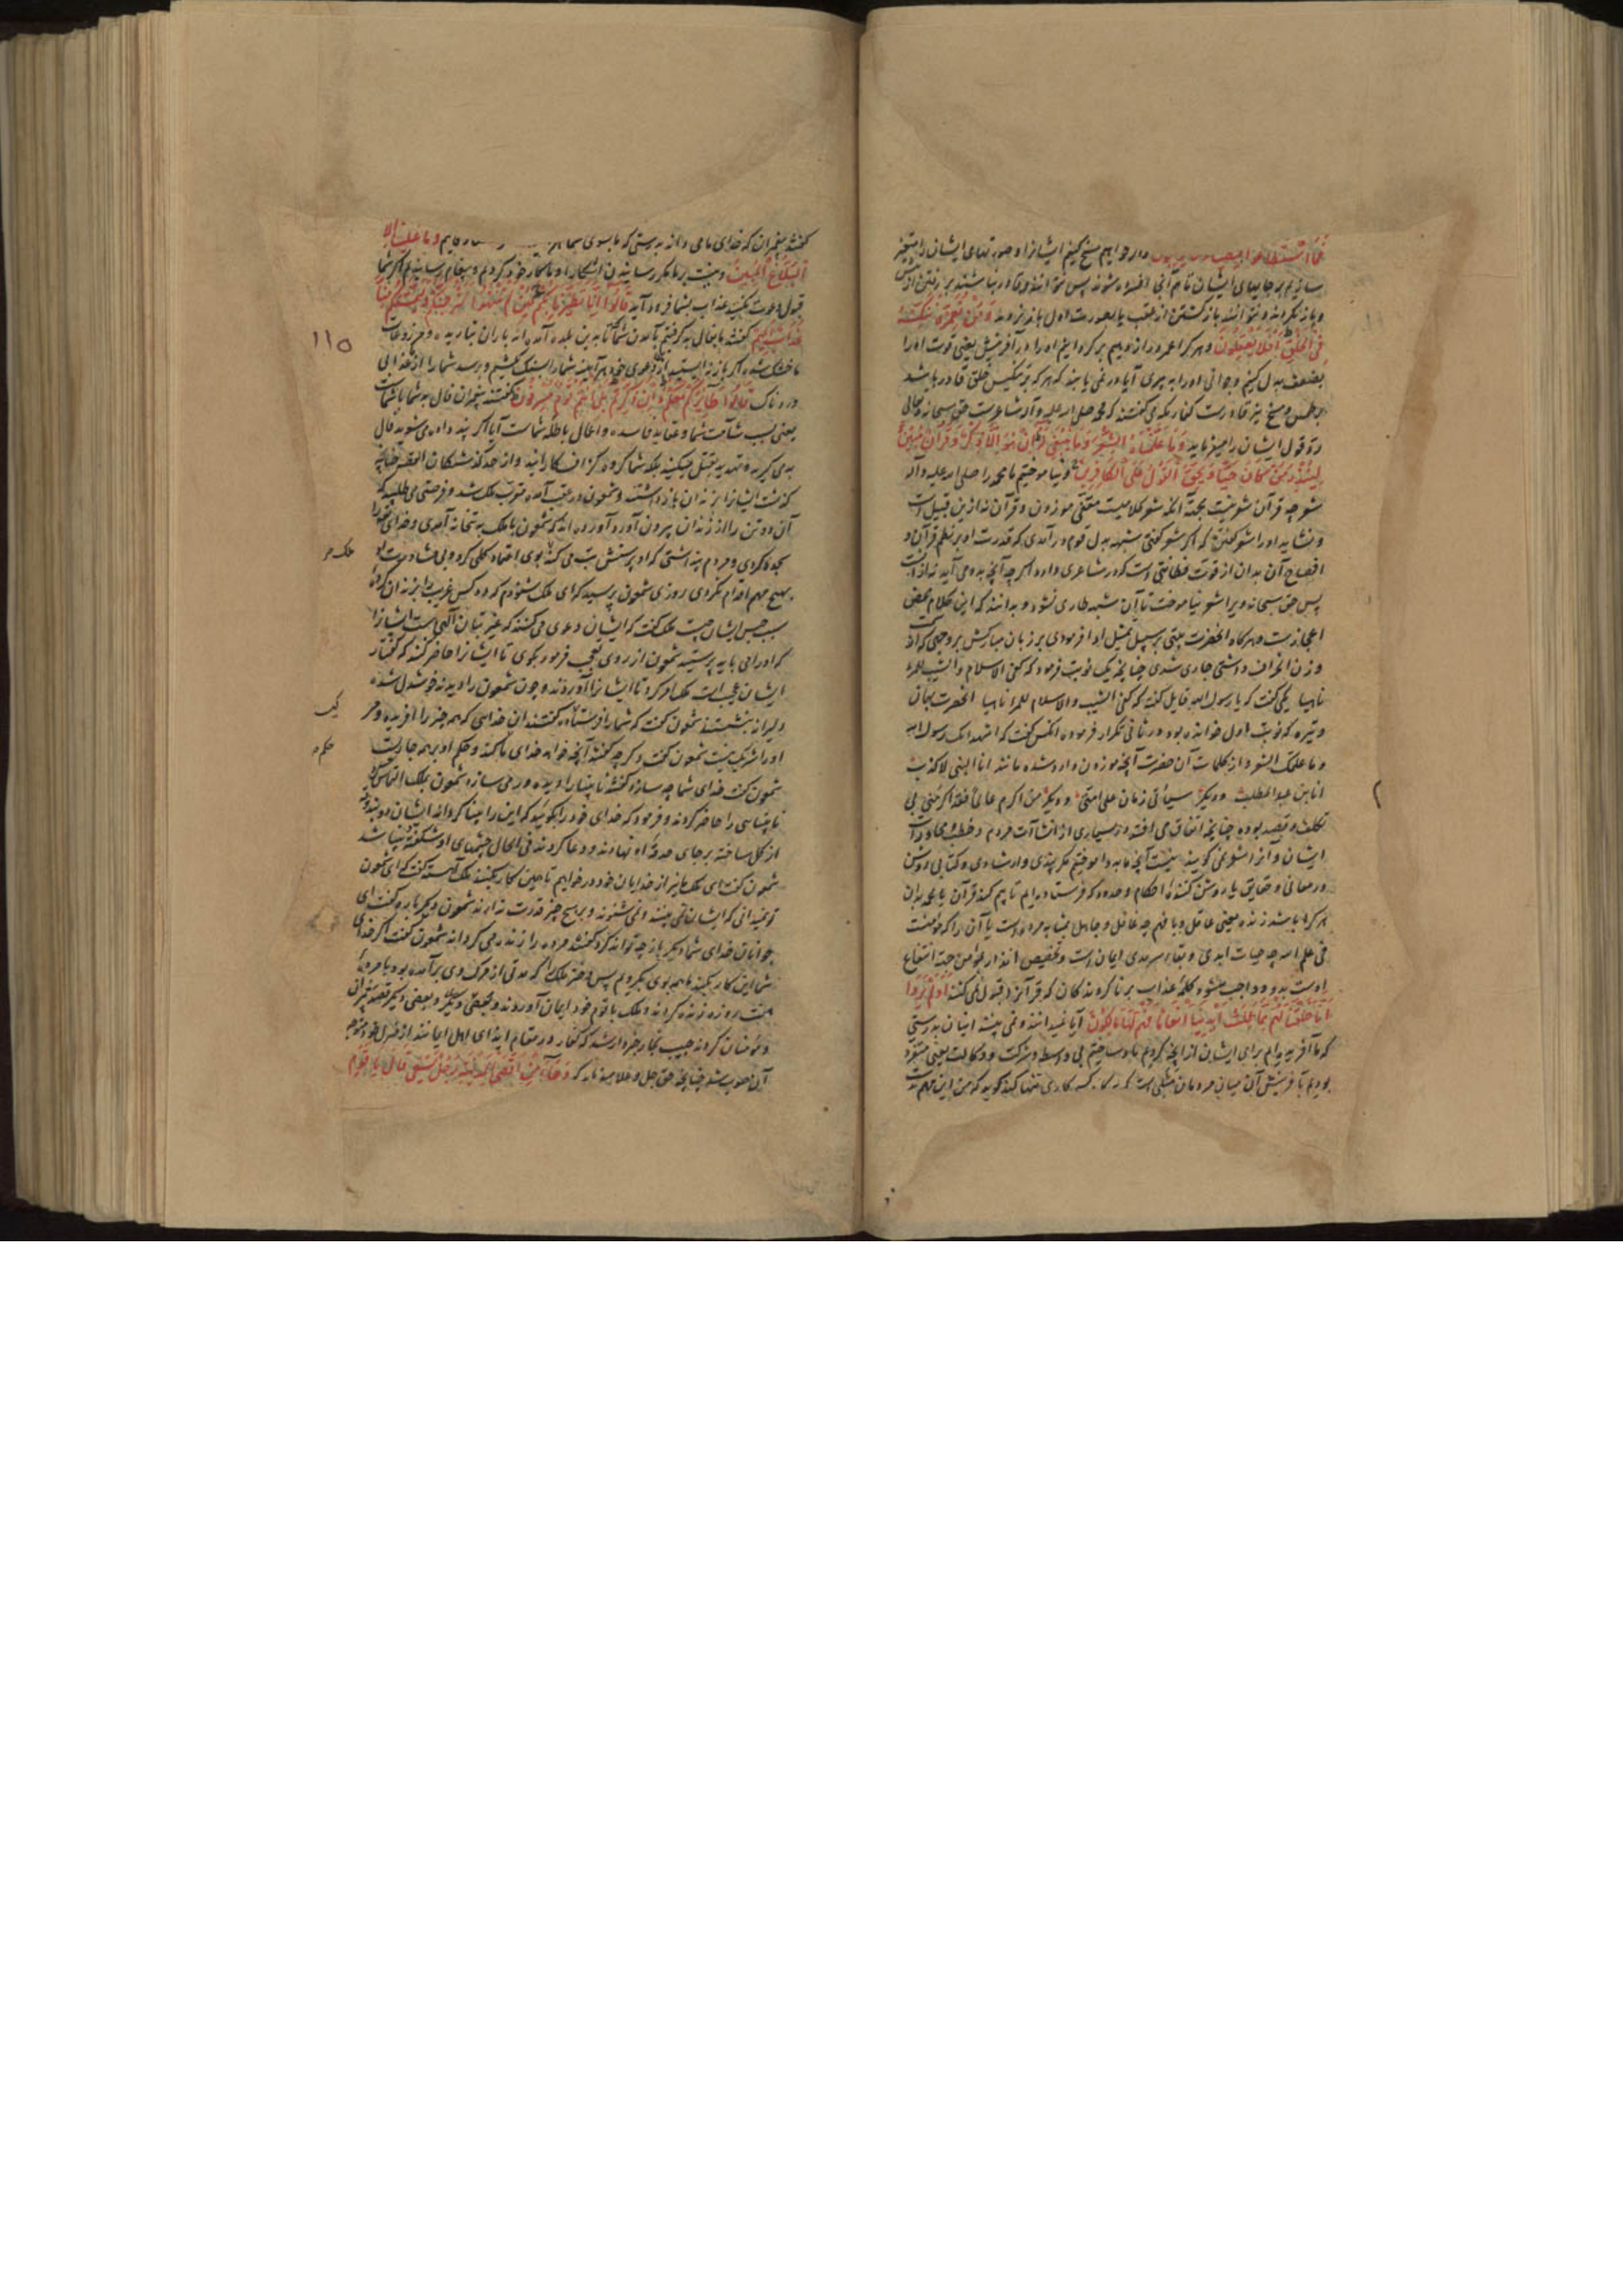 فما استطاعوا مضیا ولا یرجعون و اگر خواهیم مسخ کنیم ایشانرا و صورتهای ایشان را متغیر
سازیم بر جایهای ایشان تا هم آنجا افسرده شوند پس نتوانند و قادر نباشند بر رفتن از پیش
و باز نگردند و نتوانند بازگشتن از عقب یا بصورت اول باز نروند و من نعمره ننکسه
فی الخلق افلا یعقلون و هر کرا عمر دراز دهیم برگردانیم او را در آفرینش یعنی قوت او را
بضعف بدل کنیم و جوانی او را به پیری آیا در نمی یابند که هر که بر تنکیس خلق قادر باشد
بر طمس و مسخ نیز قادرست کفار مکه می گفتند که محمد صلی الله علیه و آله شاعرست حق سبحانه و تعالی
رد قول ایشان را میفرماید و ما علمناه الشعر و ما ینبغی له ان هو الا ذکر و قرآن مبین
لینذر من کان حیا و یحق القول علی الکافرین و نیاموختیم ما محمد را صلی الله علیه و آله
شعر چه قرآن شعر نیست بجهة آنکه شعر کلامیست مقفی موزون و قرآن نه ازین قبیل است
و نشاید او را شعر گفتن که اگر شعر گفتی شبهه بدل قوم در آمدی که قدرت او بر نظم قرآن و
افصاح آن بدان از قوت فطانتی است که در شاعری دارد
پس حق سبحانه ویرا شعر نیاموخت تا آن شبهه طاری نشود و بدانند که این کلام محض
اعجازست و هرگاه آنحضرت بیتی بر سبیل تمثیل ادا فرمودی بر زبان مبارکش بر وجهی که از
وزن انحراف داشتی جاری شدی چنانچه یک نوبت فرمود که کفی الاسلام و الشیب للمرء
ناهیا یکی گفت که یا رسول الله قایل گفته که کفی الشیب و الاسلام للمرء ناهیا آنحضرت بهمان
وتیره که نوبت اول خوانده بود در ثانی تکرار فرمود آنکس گفت که اشهد انک رسول الله
و ما علمک الشعر و از کلمات آن حضرت آنچه موزون وارد شده مانند انا النبی لا کذب
انا ابن عبد المطلب و دیگر سیأتی زمان علی امتی و دیگر من اکرم عالما فقد اکرمنی بی
تکلف و قصد بوده چنانچه اتفاق می افتد در بسیاری از انشآت مردم و خطب و محاورات
ایشان و آنرا شعر نمی گویند نیست آنچه ما بدو آموختیم مگر پندی و ارشادی و کتابی روشن
در معانی و حقایق یا روشن کننده احکام و حدود که فرستاده ایم تا بیم کند قرآن یا محمد بدان
هر که را باشد زنده یعنی عاقل و با فهم چه غافل و جاهل بمثابه مرده است یا آن را که مؤمنست
فی علم الله چه حیات ابدی و بقاء سرمدی ایمان است و تخصیص انذار بمؤمن جهة انتفاع
اوست بدو و واجب بشود کلمه عذاب بر ناگرویدگان که قرآنرا قبول نمی کنند اولم یروا
انا خلقنا لهم مما عملت ایدینا انعاما فهم لها مالکون آیا نمیدانند و نمی بینند اینان بدرستی
که ما آفریدیم برای ایشان از آنچه کردیم ما و ساختیم بی واسطه و شرکت و وکالت یعنی متفرد
بودیم بآفرینش آن میان مردمان مثلی است که کسی کاری تنها کند گوید که من این مهم بدست
گفتند پیغمبران که خدای ما می داند بدرستی که ما بسوی شما فرستاده گانیم و ما علینا الا
البلاغ المبین و نیست بر ما مگر رسانیدن آشکارا و ما کار خود کردیم و پیغام رسانیدیم اگر شما
قبول دعوت نکنید عذاب بشما فرود آید قالوا انا تطیرنا بکم لئن لم تنتهوا لنرجمنکم و لیمسنکم منا
عذاب الیم گفتند ما بفال بد گرفتیم بآمدن شما که تا بدین بلده آمده اند باران نباریده و مزروعات
ما خشک شده اگر باز نه ایستید ازین دعوی خود هر آینه شما را سنگ کشیم و برسد شما را از ما عذابی
دردناک قالوا طائرکم معکم ائن ذکرتم بل انتم قوم مسرفون گفتند پیغمبران فال بد شما با شماست
یعنی بسبب شآمت شما و عقاید فاسده و اعمال باطله شماست آیا اگر پند داده می شوید فال
بد می گیرید و تهدید بقتل میکنید بلکه شما گروه گزاف کارانید و از حد گذشتگان القصه چنانچه
گذشت ایشانرا بزندان باز داشتند و شمعون در عقب آمده مقرب ملک شد و فرصتی می طلبید که
آن دو تن را از زندان بیرون آورد آورده اند که شمعون با ملک به بتخانه آمدی و خدای خود را
سجده کردی و مردم پنداشتی که او پرستش بت می کند بوی اعتماد کلی کرد و بی مشاورت او
بهیچ مهم اقدام نکردی روزی شمعون پرسید که ای ملک شنودم که دو کس غریب را بزندان کرده
سبب حبس ایشان چیست ملک گفت که ایشان دعوی می کنند که غیر بتان آلهی است ایشانرا
که او را می باید پرستید شمعون از روی تعجب فرمود بگوی تا ایشانرا حاضر کنند که گفتار
ایشان عجب است ملک امر کرد تا ایشانرا آوردند و چون شمعون را دیدند خوشدل شده
دلیرانه بنشستند شمعون گفت که شما را فرستاده گفتند آن خدایی که همه چیز را آفریده و مر
او را شریک نیست شمعون گفت دیگر چه گفتند آنچه خواهد خدای ما کند و حکم او بر همه جاریست
شمعون گفت خدای شما چه سازد گفتند نابینا را دیده ور می سازد شمعون بملک التماس کرد
نابینایی را حاضر کردند و فرمود که خدای خود را بگویید که این را بینا گرداند ایشان دو بندقه
از گل ساخته بر جای حدقه او نهادند و دعا کردند فی الحال چشمهای او شکفته و بینا شد
شمعون گفت ای ملک ما نیز از خدایان خود در خواهیم تا چنین کار بکنند ملک آهسته گفت که ای شمعون
تو نمیدانی که ایشان نمی بینند و نمی شنوند و بر هیچ چیز قدرت ندارند شمعون دیگر باره گفت ای
جوانان خدای شما دیگر باز چه تواند کرد گفتند مرده را زنده می گرداند شمعون گفت اگر خدای
شما این کار بکند ما همه بوی بگرویم پس دختر ملک را که مدتی از مرگ وی بر آمده بود یا مرده
هفت روزه زنده کردند و ملک با قوم خود ایمان آوردند و بعضی دیگر
و مؤمنان کردند حبیب نجار خبردار شد که کفار در مقام ایذای اهل ایمانند از منزل خود متوجه
آن صوب شد چنانچه حق جل و علا میفرماید که و جاء من اقصی المدینة رجل یسعی قال یا قوم
۱۱۵
ملک مر
یک
حکم